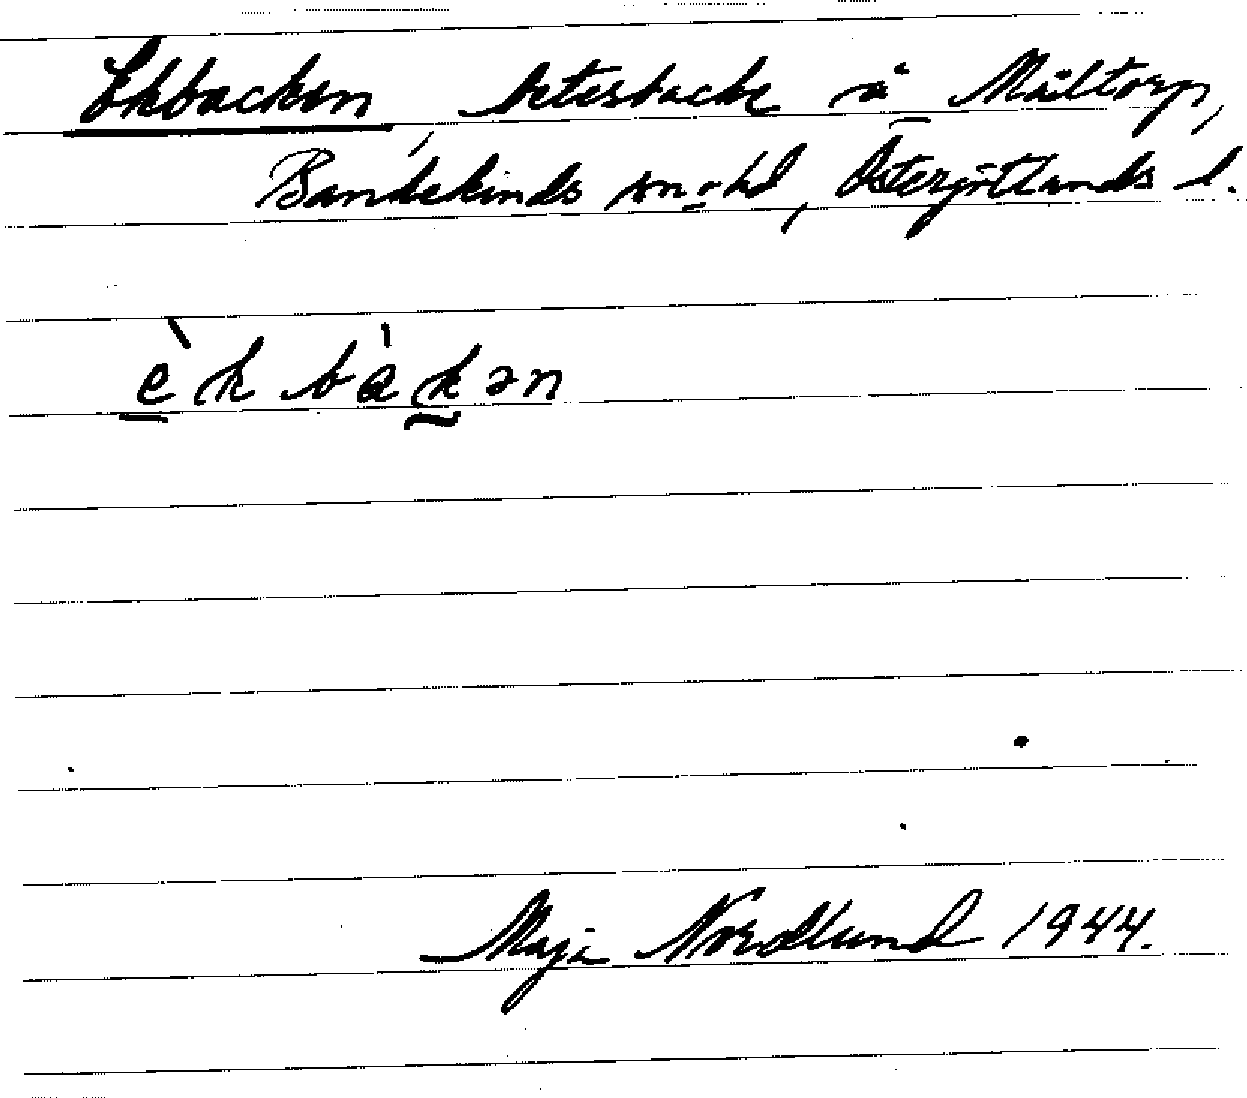 Ekbacken, betesbacke å Måltorp,
Bankekinds sn o hd, Östergötlands l.
è̱k bàk̰ən
Maja Nordlund 1944.